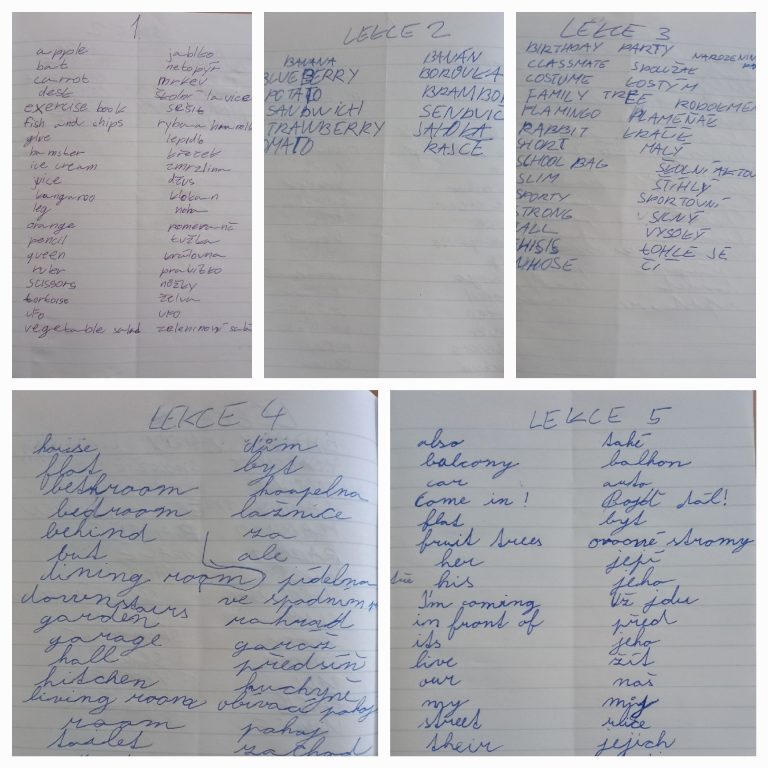 1.
apple jablko
bat netopýr
carrot mrkev
desk školní lavice
exercise book sešit
fish and chips
give
hamster křeček
ice cream zmrzlina
juice džus
kangaroo klokan
leg noha
orange pomeranč
pencil tužka
queen královna
ruler pravítko
scissors nůžky
tortoise želva
ufo ufo
vegetable salad zeleninový salá
LEKCE 2
BANANA BANÁN
BLUEBERRY BORŮVKA
POTATO BRAMBO
SANDWICH SENDVIC
TRAWBERRY JAHODA
OMATO RAJCE
LEKCE 3
BIRTHDAY PARTY NAROZENIN
CLASSMATE SPOLUŽÁK
COSTUME COSTYM
FAMILY TREE RODOKMEN
FLAMINGO PLAMEŇÁK
RABBIT KRÁLÍK
SHORT MALÝ
SCHOOL BAG ŠKOLNÍ AKTOV
SLIM ŠTÍHLÝ
SPORTY SPORTOVNÍ
STRONG SILNÝ
TALL VYSOKÝ
THISIS TOHLE JE
WHOSE ČÍ
LEKCE 4
house dům
flat byt
bethroom koupelna
bedroom ložnice
behind za
but ale
dining room jídelna
downstairs ve spodním
garden zahrad
garage garáž
hall předsíň
kitchen kuchyně
living room obívací pokoj
room pokoj
toilet záchod
LEKCE 5
also také
balcony balkon
car auto
Come in! Pojď dál!
flat byt
fruit trees ovocné stromy
her její
his jeho
I'm coming Už jdu
in front of před
its jeho
live žít
our náš
my můj
street ulice
their jejich